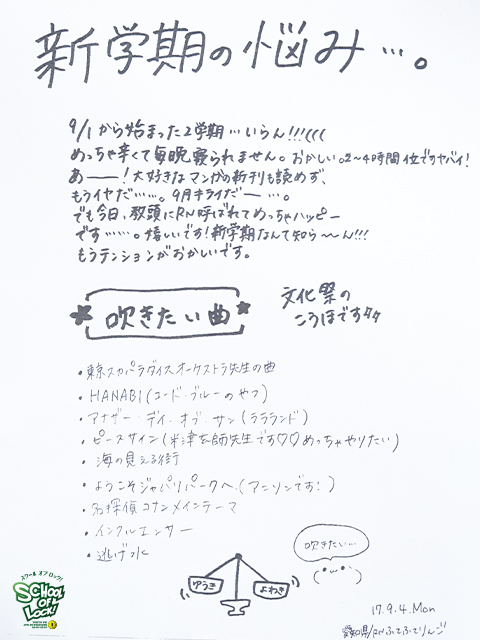 新学期の悩み…。
9/1から始まった2学期…いらん!!!(((
めっちゃ辛くて毎晩寝られません。おかしい。2〜4時間位でヤバイ!
あ――!大好きなマンガの新刊も読めず、
もうイヤだ……。9月キライだー…。
でも今日、教頭にRN呼ばれてめっちゃハッピー
です……。嬉しいです!新学期なんて知ら〜〜ん!!!
もうテンションがおかしいです。
吹きたい曲
文化祭の
こうほです
・東京スカパラダイスオーケストラ先生の曲
・HANABI(コード・ブルーのやつ)
・アナザー・デイ・オブ・サン(ララランド)
・ピースサイン(米津玄師先生です♡♡めっちゃやりたい)
・海の見える街
・ようこそジャパリパークへ(アニソンです!)
・名探偵コナンメインテーマ
・インフルエンサー
・逃げ水
吹きたい…
ゆうき
よわき
17.9.4.Mon
愛知県/RN ふてふてりんご
スクール オブ ロック!
SCHOOL OF LOCK!